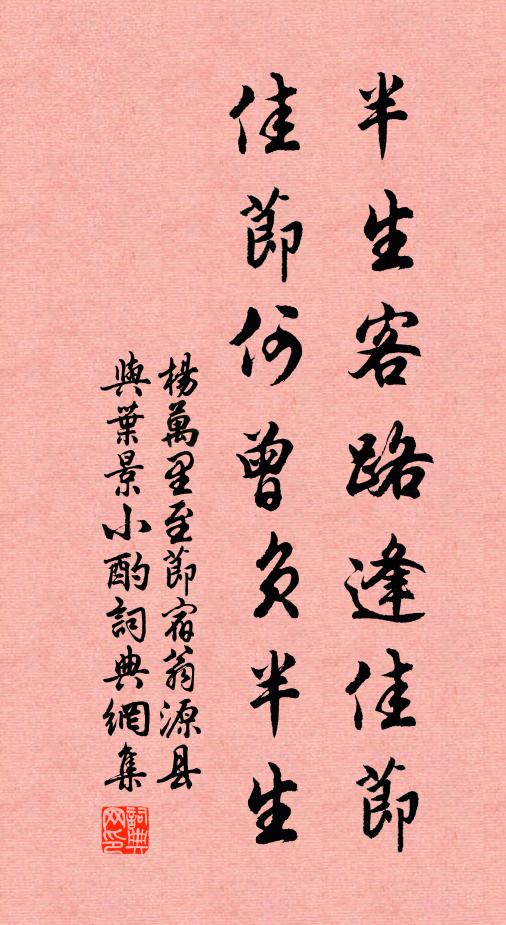 半生客路逢佳節
佳節何曾負半生
楊萬里至節宿翁源县
與葉景小酌詞典網集
詞典
网印